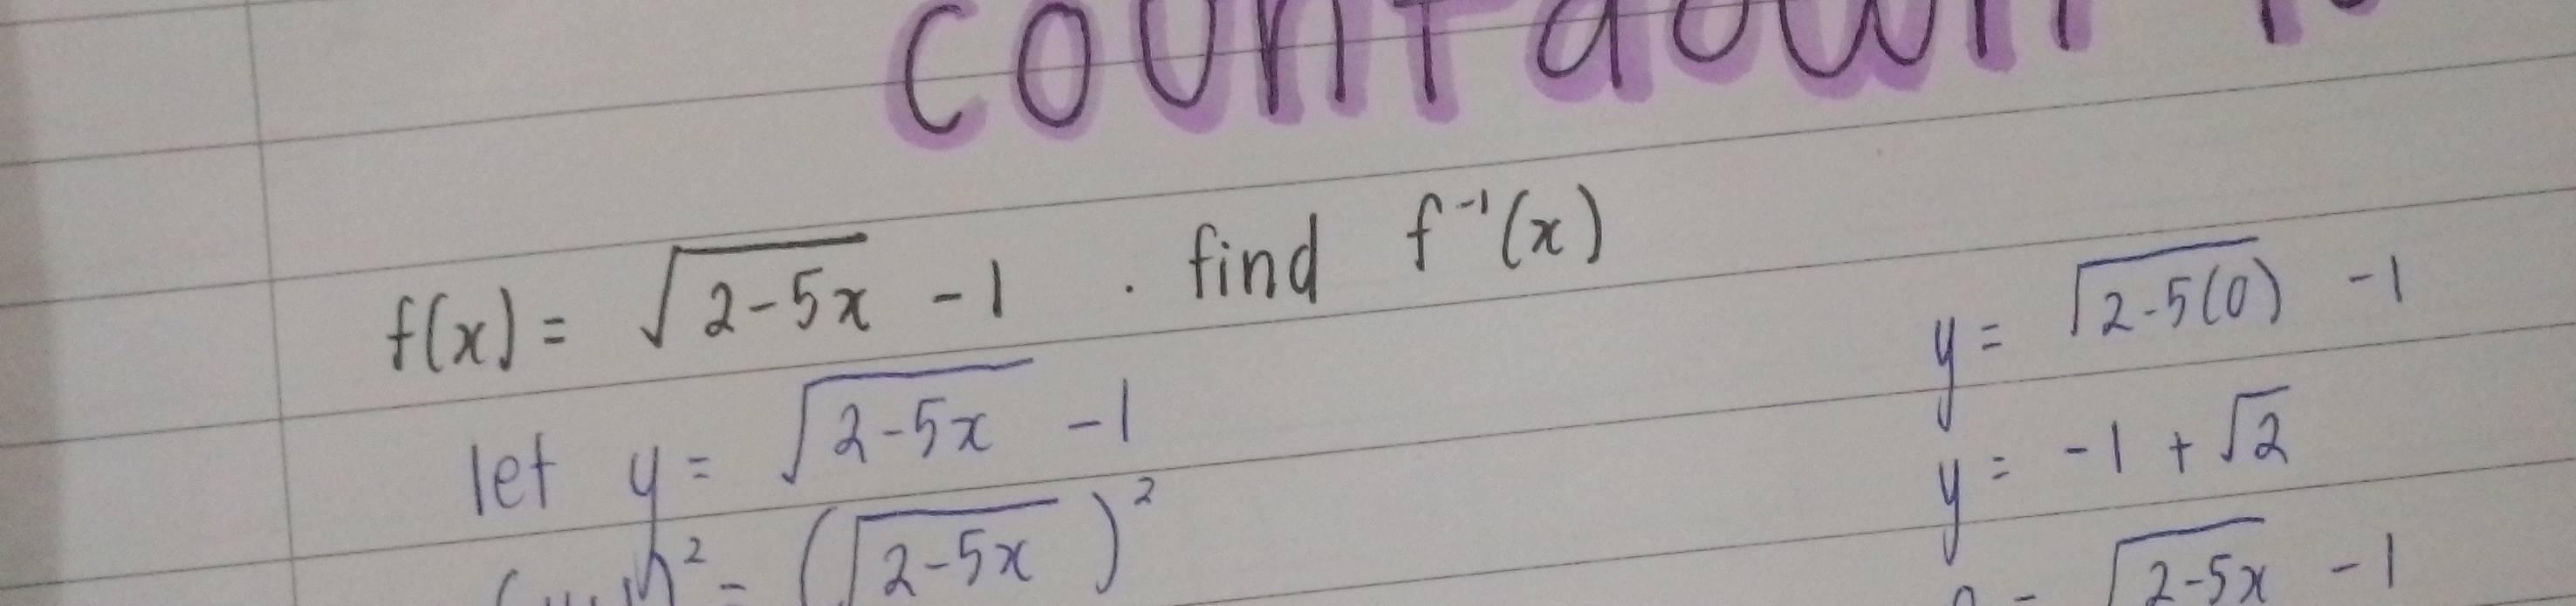 countdown
f(x) = √(2-5x) - 1 . find f⁻¹(x)
let y = √(2-5x) - 1
² = (√(2-5x))²
y = √(2-5(0)) - 1
y = -1 + √2
= √(2-5x) - 1